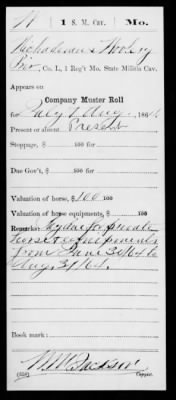 1 S. M. Cav. Mo.
Pvt, Co. L, 1 Reg't Mo. State Militia Cav.
Appears on
Company Muster Roll
for July & Aug, 1864.
Present or absent Present
Stoppage, $ 100 for
Due Gov't, $ 100 for
Valuation of horse, $ 100
Valuation of horse equipments, $ 100 for
Remarks: for private
horse & equipments
from June 30/64 to
Aug. 31/64.
Book mark:
(858) Copyist.